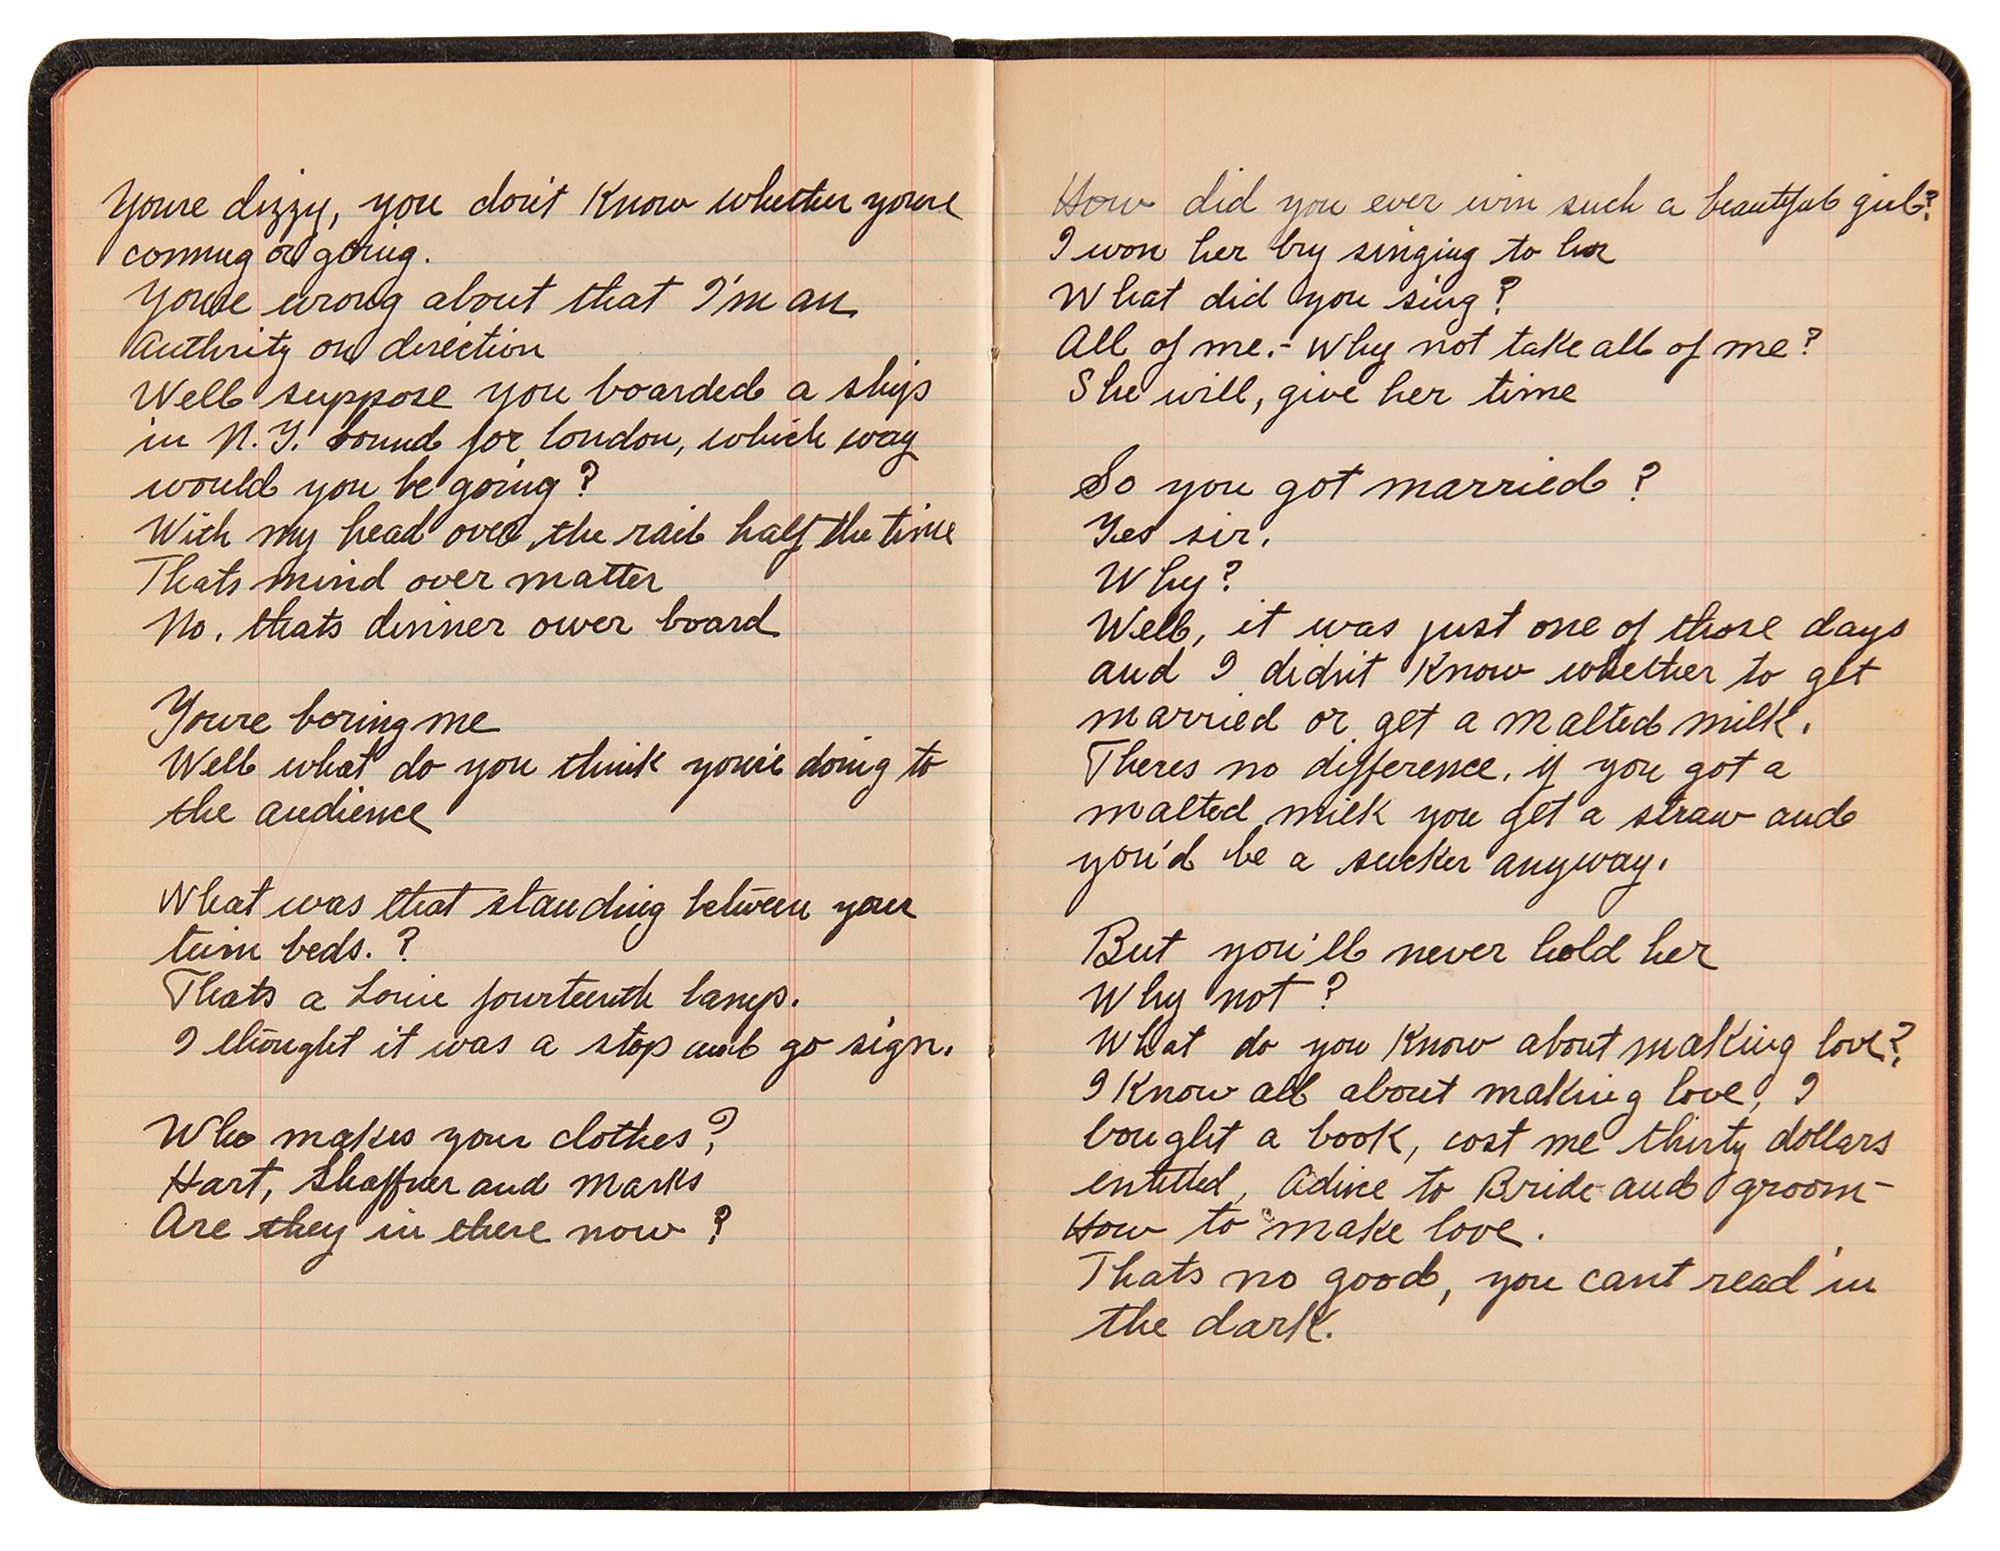 Youre dizzy, you don't know whether youre
coming or going.
Youre wrong about that I'm an
Authrity on direction
Well suppose you boarded a ship
in N.Y. bound for london, which way
would you be going?
With my head over the rail half the time
Thats mind over matter
No, thats dinner ower board
Youre boring me
Well what do you think you're doing to
the audience
What was that standing between your
twin beds.?
Thats a Louie fourteenth lamp.
I thought it was a stop and go sign.
Who makes your clothes?
Hart, Shaffner and Marks
Are they in there now?
How did you ever win such a beautiful girl?
I won her by singing to her
What did you sing?
All of me.- Why not take all of me?
She will, give her time
So you got married?
Yes sir.
Why?
Well, it was just one of those days
and I didn't know whether to get
married or get a malted milk.
Theres no difference, if you got a
malted milk you get a straw and
you'd be a sucker anyway.
But you'll never hold her
Why not?
What do you know about making love?
I know all about making love, I
bought a book, cost me thirty dollars
entitled, Advice to Bride and groom-
How to make love.
Thats no good, you cant read in
the dark.